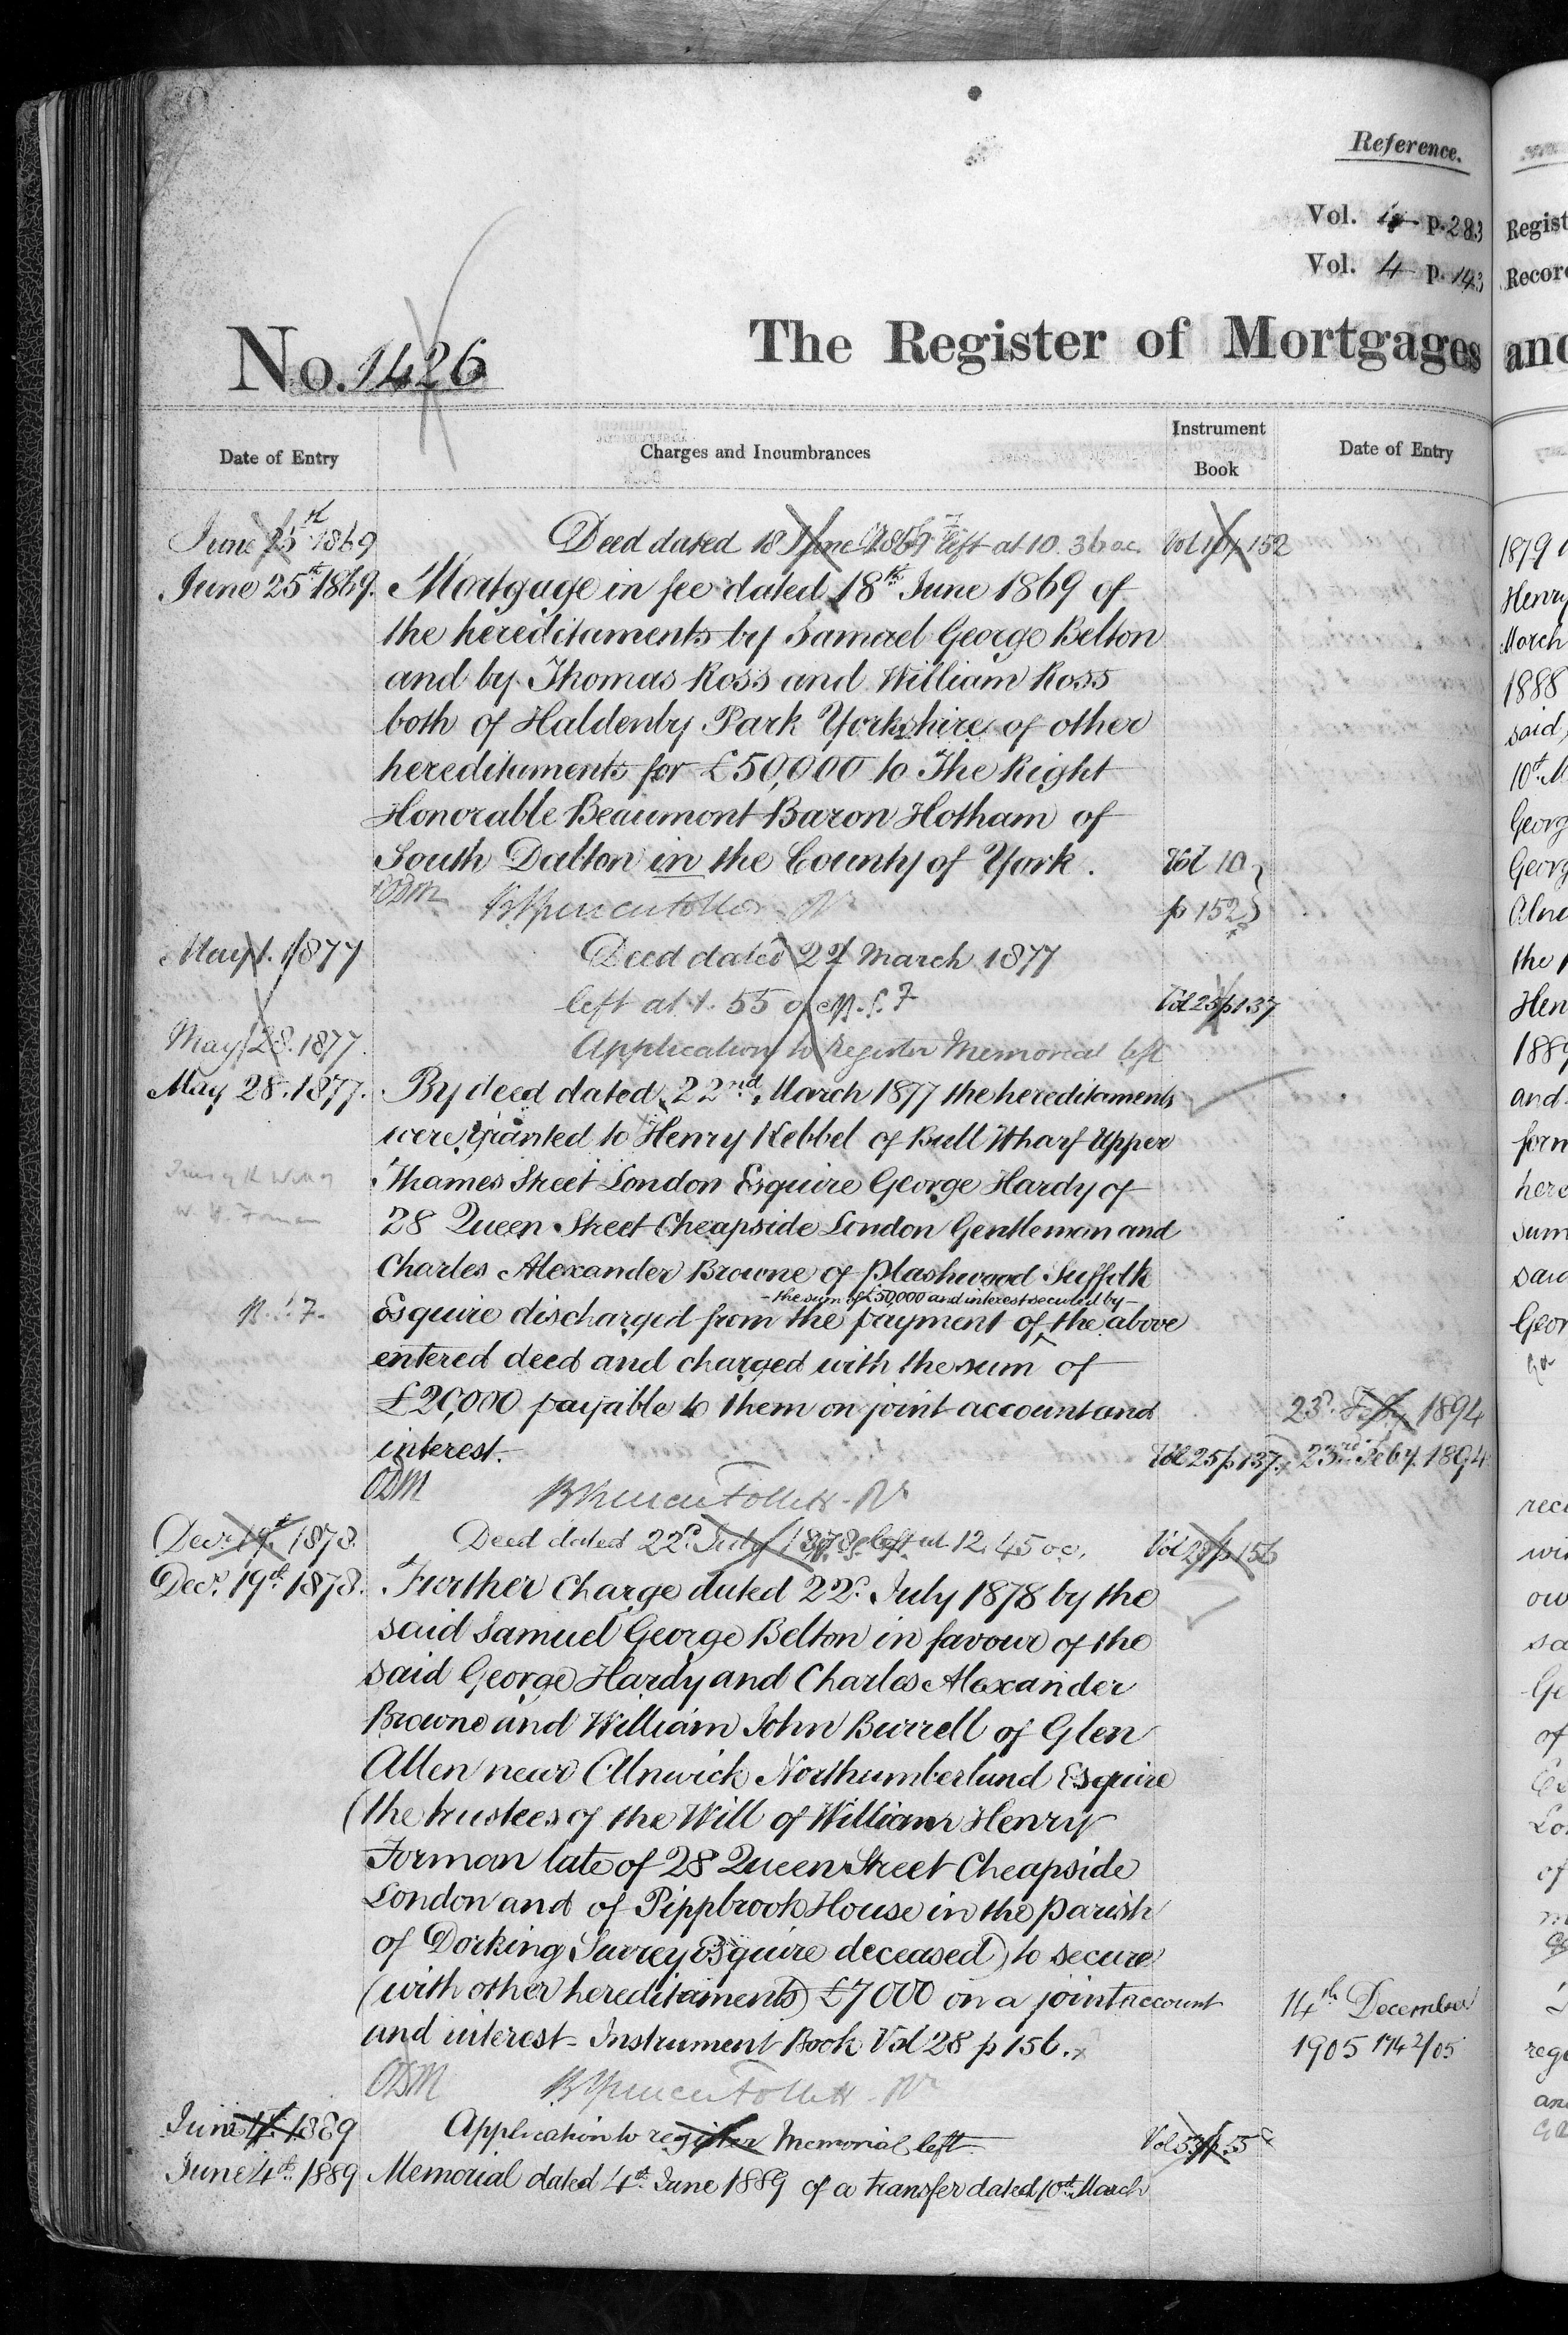 Reference.
Vol. p. 283
Vol. 4 p. 143
No. 1426
The Register of Mortgages
Date of Entry
Charges and Incumbrances
Instrument
Book
Date of Entry
June 25th 1869 Deed dated 18 June 1869 left at 10.36 oc. Vol 10 p 152
June 25th 1869. Mortgage in fee dated 18th June 1869 of
the hereditaments by Samuel George Belton
and by Thomas Ross and William Ross
both of Haldenby Park Yorkshire of other
hereditaments for £50,000 to The Right
Honorable Beaumont Baron Hotham of
South Dalton in the County of York. Vol 10
p 152
ODM
May 1. 1877 Deed dated 22 March 1877
left at 1.55 Vol 25 p 137
May 28. 1877. Application to Register Memorial left
May 28. 1877. By deed dated 22nd March 1877 the hereditaments
were granted to Henry Kebbel of Bull Wharf Upper
Thames Street London Esquire George Hardy of
28 Queen Street Cheapside London Gentleman and
Charles Alexander Browne of Plashwood Suffolk
- the sum of £50,000 and interest secured by -
Esquire discharged from the payment of the above
entered deed and charged with the sum of
£20,000 payable to them on joint account and
23d. Feby 1894
interest. Vol 25 p 137. 23rd Feby. 1894
ODM
Decr. 19th 1878. Deed dated 22d. July 1878 left at 12.45 oc. Vol 28 p 156
Decr. 19th 1878. Further Charge dated 22d. July 1878 by the
said Samuel George Belton in favour of the
said George Hardy and Charles Alexander
Browne and William John Burrell of Glen
Allen near Alnwick Northumberland Esquire
(the trustees of the Will of William Henry
Forman late of 28 Queen Street Cheapside
London and of Pippbrook House in the parish
of Dorking Surrey Esquire deceased) to secure
(with other hereditaments) £7000 on a joint account
14th December
and interest - Instrument Book Vol 28 p 156.
1905
ODM
June 4th 1889 Application to register Memorial left. Vol 53 p 55
June 4th 1889 Memorial dated 4th June 1889 of a transfer dated 10th March
Regist
Record
and
1879
Henry
March
1888
said
10th M
Georg
Georg
Alne
the
Hen
1889
and
form
here
sum
said
Geor